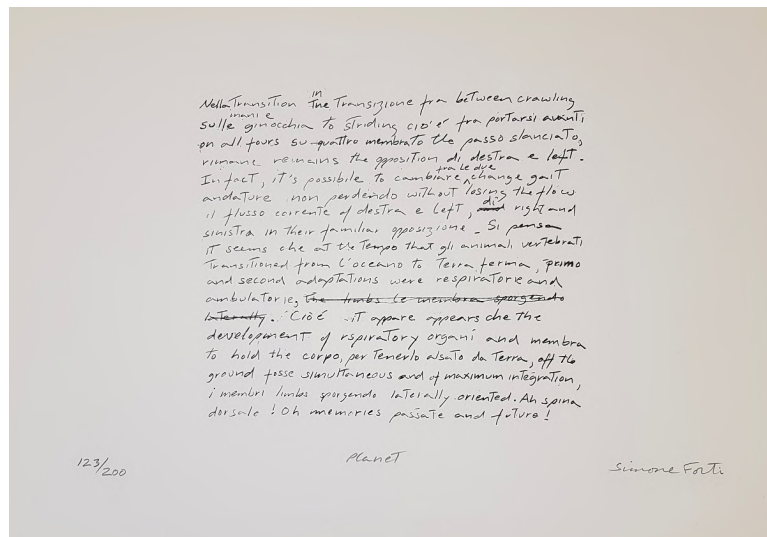 Nella Transition in the Transizione fra between crawling
sulle mani e ginocchia to striding cio'é fra portarsi avanti
on all fours su quattro membrato the passo slanciato,
rimane remains the opposition di destra e left.
In fact, it's possibile to cambiare fra le due change gait
andature non perdendo without losing the flow
il flusso corrente of destra e left, and di right and
sinistra in their familiar opposizione. Si pensa
it seems che at the tempo that gli animali vertebrati
transitioned from l'oceano to terra ferma, primo
and second adaptations were respiratorie and
ambulatorie, the limbs le membra sporgendo
laterally. Cioé it appare appears che the
development of rspiratory organi and membra
to hold the corpo, per tenerlo alsato da terra, off the
ground fosse simultaneous and of maximum integration,
i membri limbs sporgendo laterally oriented. Ah spina
dorsale! Oh memories passate and future!
123/200
Planet
Simone Forti